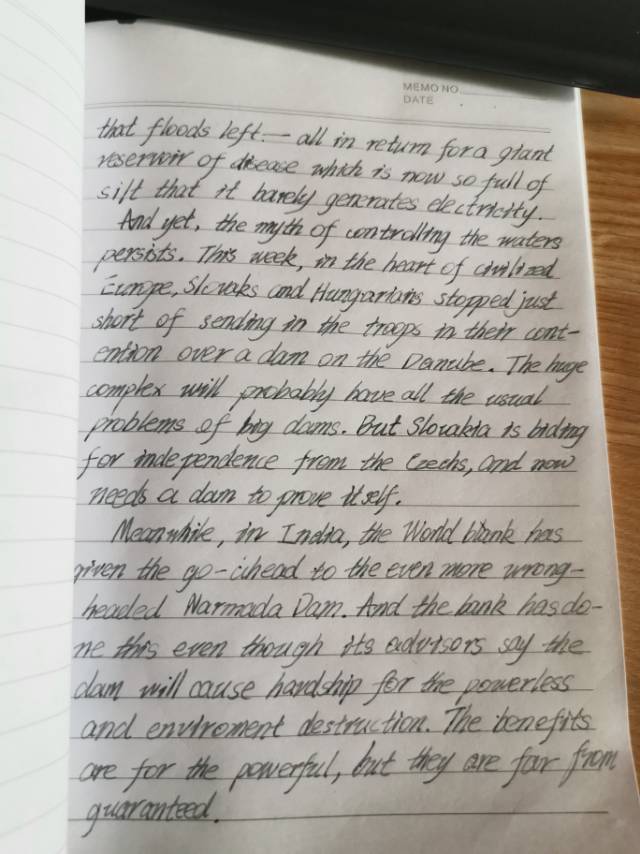 MEMO NO.
DATE
that floods left — all in return for a giant
reservoir of disease which is now so full of
silt that it barely generates electricity.
And yet, the myth of controlling the waters
persists. This week, in the heart of civilized
Europe, Slovaks and Hungarians stopped just
short of sending in the troops in their cont-
ention over a dam on the Danube. The huge
complex will probably have all the usual
problems of big dams. But Slovakia is biding
for independence from the Czechs, and now
needs a dam to prove itself.
Meanwhile, in India, the World blank has
given the go-ahead to the even more wrong-
headed Narmada Dam. And the bank has do-
ne this even though its advisors say the
dam will cause hardship for the powerless
and enviroment destruction. The benefits
are for the powerful, but they are far from
guaranteed.